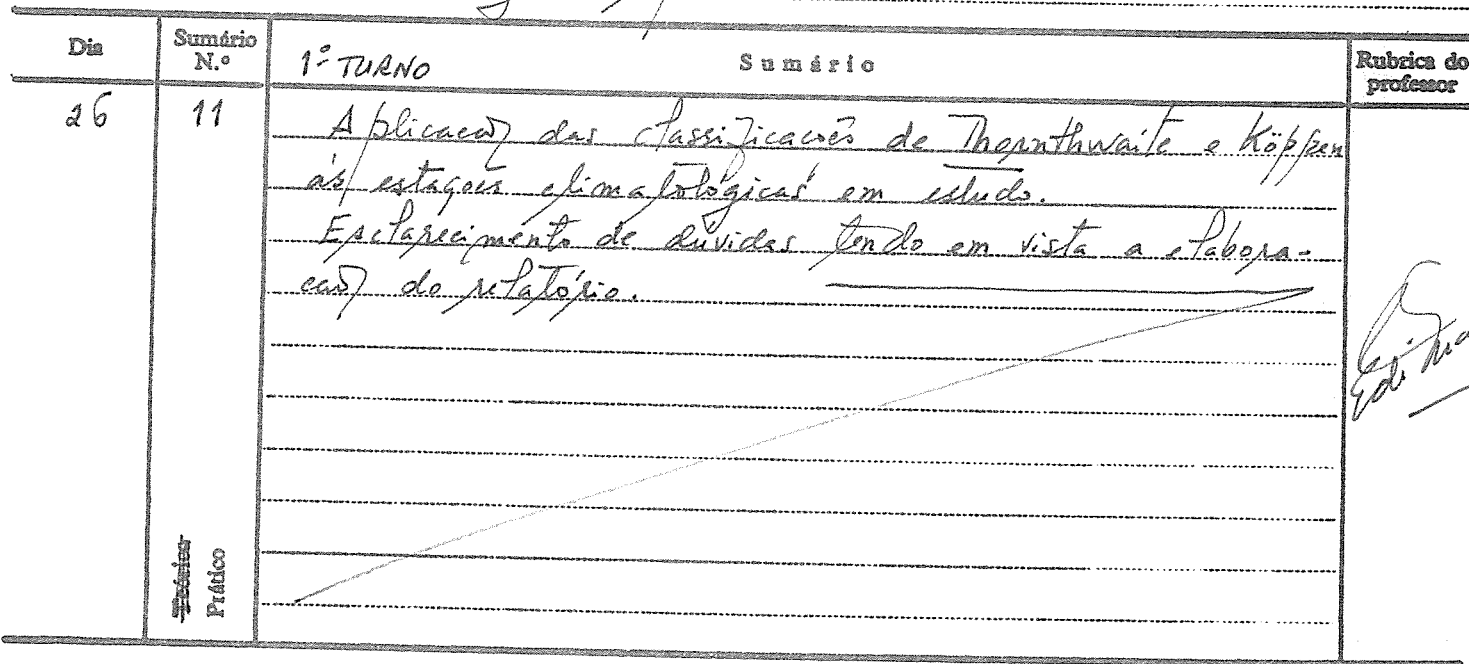 Dia
Sumário N.º
1º TURNO
Sumário
Rubrica do professor
26
11
Aplicação das classificações de Thornthwaite e Köppen
às estações climatológicas em estudo.
Esclarecimento de dúvidas tendo em vista a elabora-
ção do relatório.
Teórico
Prático